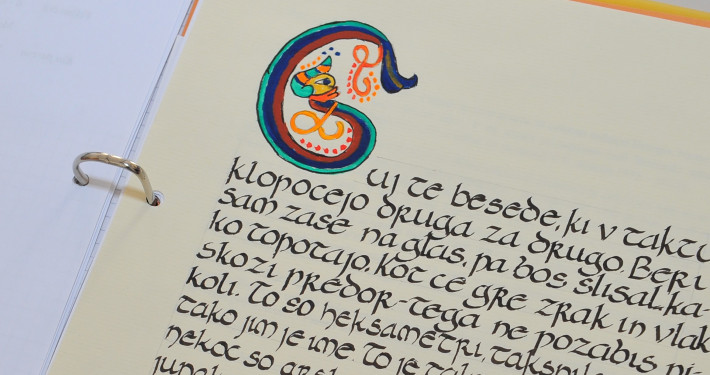 Cuj te besede, ki v taktu
klopocejo druga za drugo. Beri
sam zase na glas, pa bos slisal, ka-
ko topotajo, kot ce gre zrak in vlak
skozi predor - tega ne pozabis ni
koli. To so heksametri,
tako jim je ime. To je
nekoc so